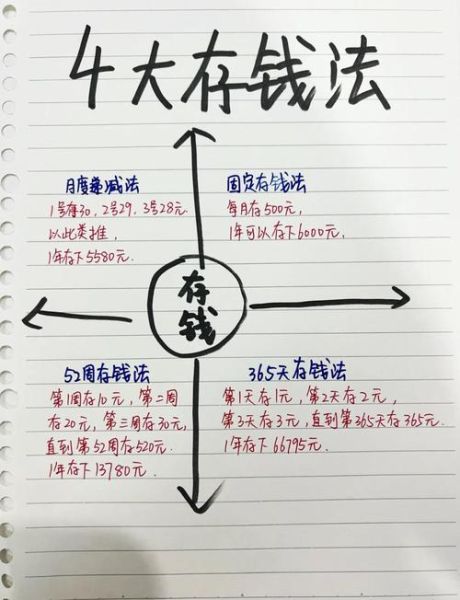 4大存钱法
月度递减法
1号存30，2号29，3号28元.
以此类推，
1年存下5580元.
固定存钱法
每月存500元，
1年可以存下6000元.
存
钱
52周存钱法
第1周存10元，第二周
存20元，第三周存30元，
直到第52周存520元.
1年存下13780元.
365天存钱法
第1天存1元，第2天存2元，
第3天存3元，直到第365天存365元.
1年存下66795元.